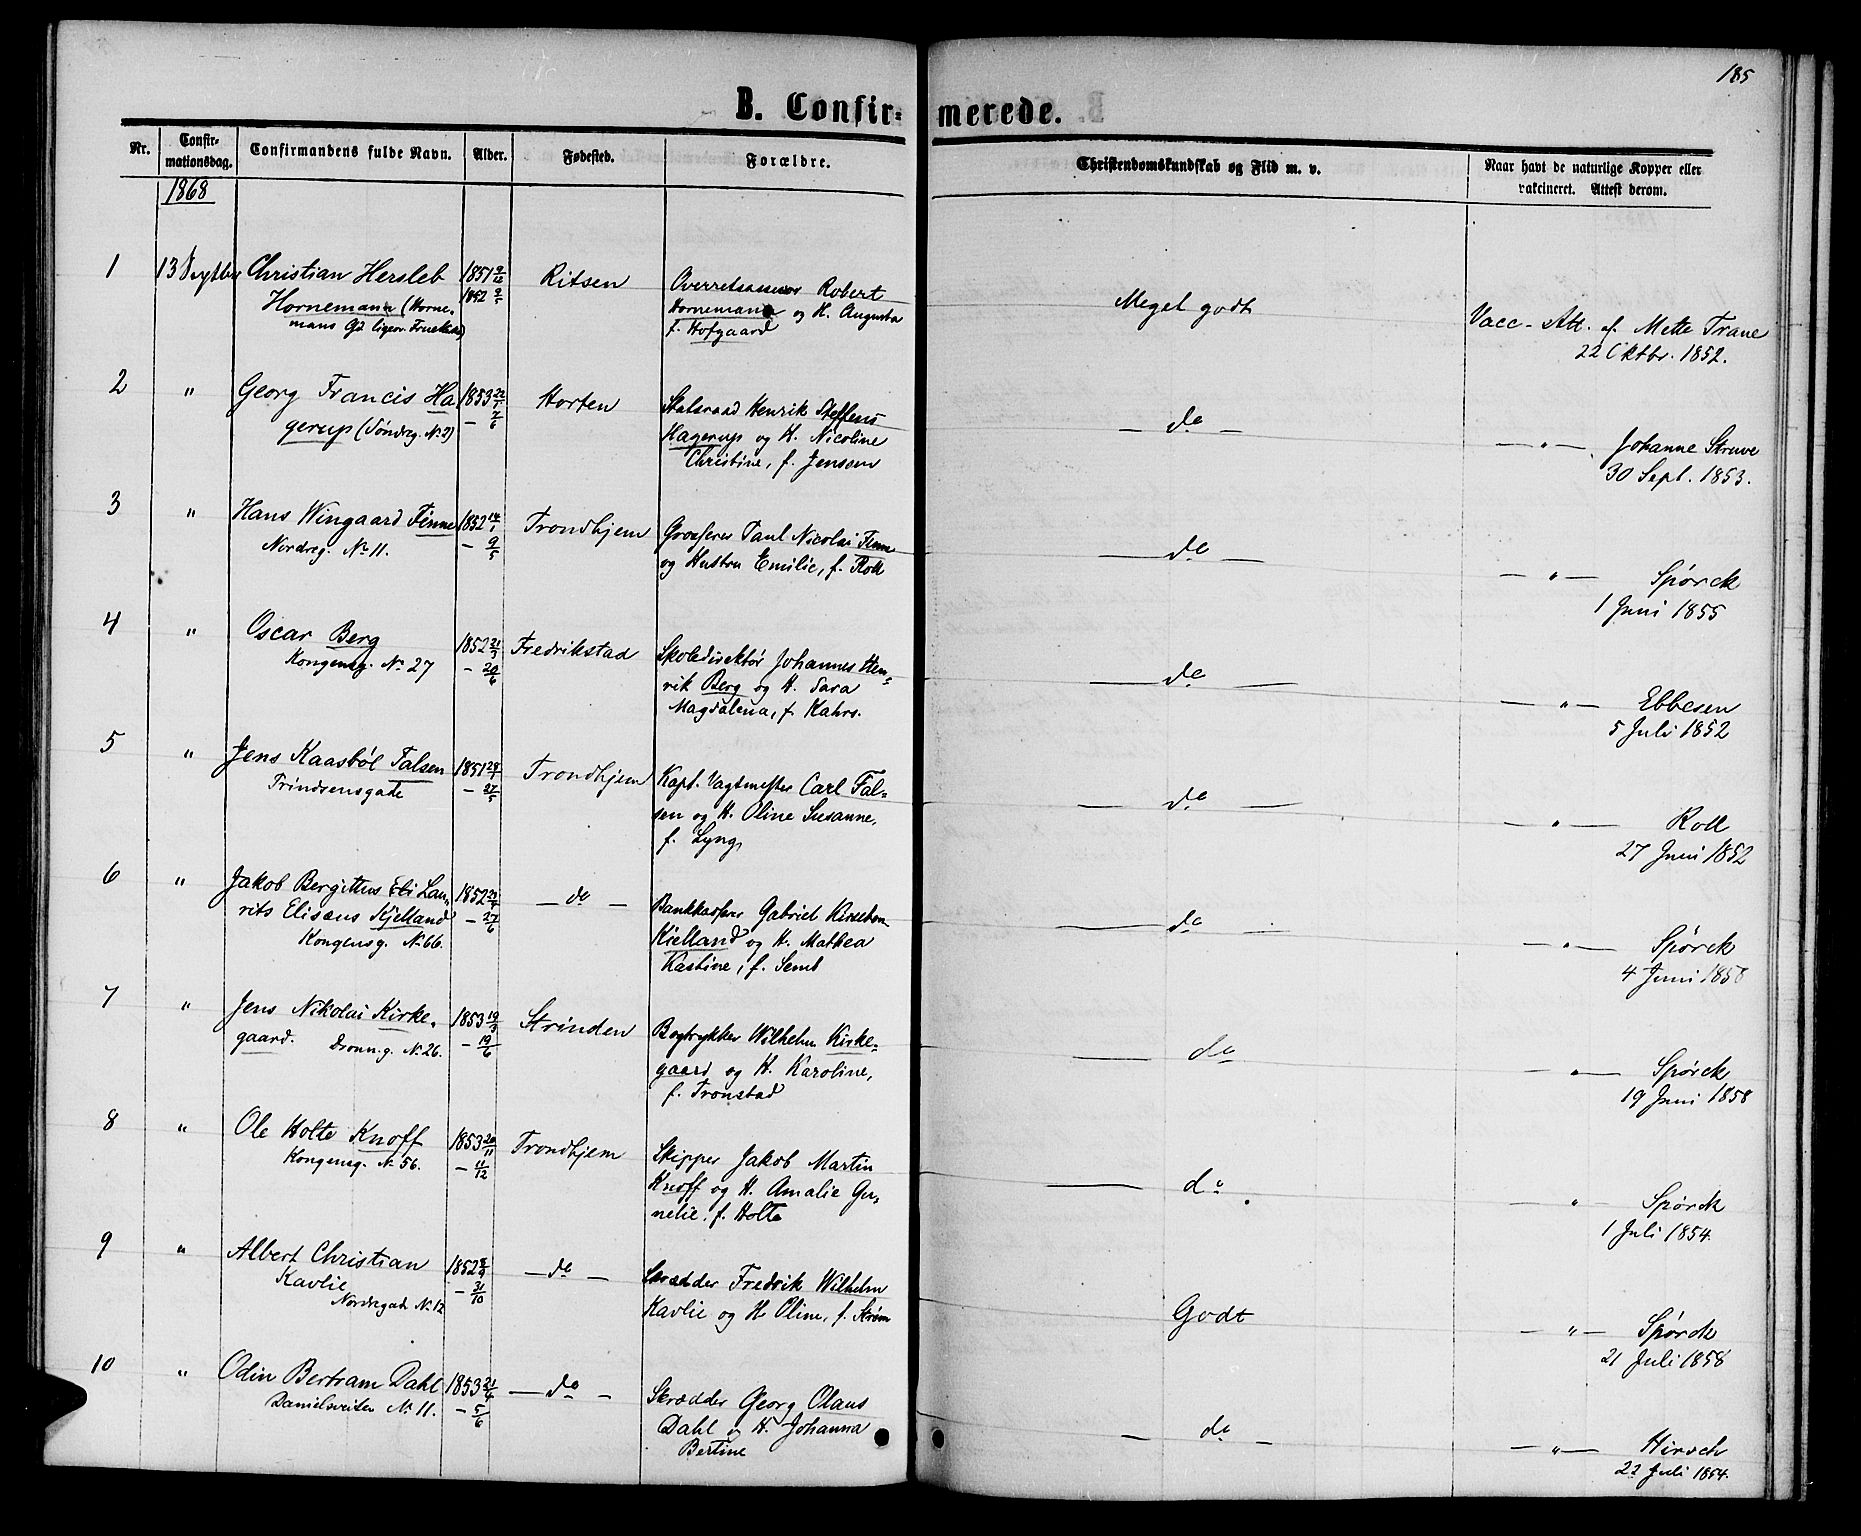 185
B. Confir-merede.
Nr. Confir-mationsdag. Confirmandens fulde Navn. Alder. Fødested. Forældre. Christendomskundskab og Flid m. v. Naar havt de naturlige Kopper eller vakcineret. Attest derom.
1868
1 13 Septbr Christian Hersleb 1851 9/12 Ritsen Overretsassessor Robert
Hornemann (Horne- 1852 9/5 Hornemann og H. Augusta Meget godt Vacc-Att. af Mette Trane
mans Gd f. Hofgaard 22 Oktbr. 1852.
2 " Georg Francis Ha 1853 22/1 Horten Statsraad Henrik Steffens
gerup (Søndreg. No 3) - 7/6 Hagerup og H. Nicoline — do — — " — Johanne Struve
Christine, f. Jensen 30 Sept. 1853.
3 " Hans Wingaard Finne 1852 14/1 Trondhjem Grosserer Paul Nicolai Finne
Nordreg. No 11. - 9/5 og Hustru Emilie, f. Roll — do — — " — Spørck
1 Juni 1855
4 " Oscar Berg 1852 21/3 Fredrikstad Skoledirektør Johannes Hen-
Kongensg. No 27 - 20/6 rik Berg og H. Sara — do — — " — Ebbesen
Magdalena, f. Kahrs. 5 Juli 1852
5 " Jens Kaasbøl Falsen 1851 28/1 Trondhjem Kapt. Vagtmester Carl Fal-
Prindsensgate - 27/5 sen og H. Oline Susanne, — do — — " — Roll
f. Lyng, 27 Juni 1852
6 " Jakob Bergittus Eli Lau- 1852 29/4 — do — Bankkasserer Gabriel Kirsebom
rits Elisæus Kjelland - 27/6 Kielland og H. Mathea — do — — " — Spørck
Kongensg. No 66. Kastine, f. Semb 4 Juni 1858
7 " Jens Nikolai Kirke- 1853 19/3 Strinden Bogtrykker Wilhelm Kirke-
gaard. Dronn.g. No 26. - 19/6 gaard og H. Karoline, — do — " — Spørck
f. Tronstad 19 Juni 1858
8 " Ole Holte Knoff 1853 20/11 Trondhjem Skipper Jakob Martin
Kongensg. No 56. - 11/12 Knoff og H. Amalie Gu- — do " Spørck
nelie, f. Holte 1 Juli 1854.
9 " Albert Christian 1852 8/9 — do — Skrædder Fredrik Wilhelm
Kavlie - 31/10 Kavlie og H. Oline, f. Strøm Godt — " — Spørck
Nordregade No 12 21 Juli 1858
10 " Odin Bertram Dahl 1853 21/4 — do — Skrædder Georg Olaus
Danielsveiten No 11. - 5/6 Dahl og H. Johanna — do — — " — Hirsch
Bertine 22 Juli 1854.